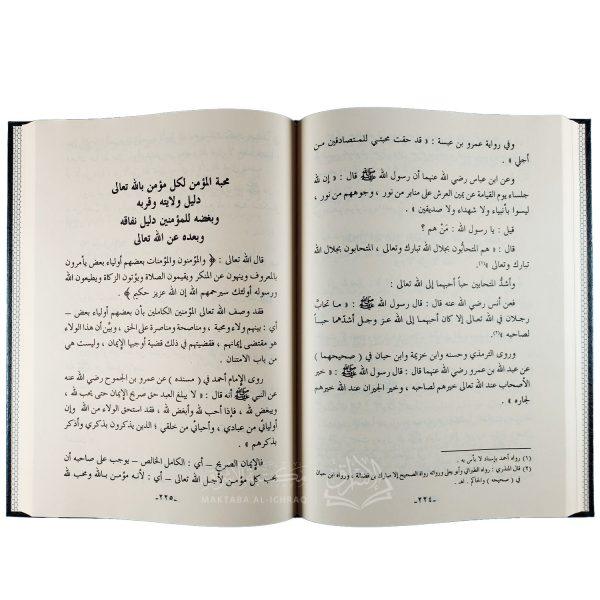 وفي رواية عمرو بن عبسة : « قد حقت محبتي للمتصادقين من
أجلي » .
وعن ابن عباس رضي الله عنهما أن رسول الله ﷺ قال : « إن لله
جلساء يوم القيامة عن يمين العرش على منابر من نور ، وجوههم من نور ،
ليسوا بأنبياء ولا شهداء ولا صديقين » .
قيل : يا رسول الله : مَنْ هم ؟
قال : « هم المتحابُّون بجلال الله تبارك وتعالى ، المتحابون بجلال الله
تبارك وتعالى »(١).
وأشدُّ المتحابين حباً أحبهما إلى الله :
فعن أنس رضي الله عنه قال : قال رسول الله ﷺ : « ما تحابَّ
رجلان في الله تعالى إلا كان أحبهما إلى الله عز وجل أشدّهما حباً
لصاحبه »(٢).
وروى الترمذي وحسنه وابن خزيمة وابن حبان في ( صحيحهما )
عن عبد الله بن عمرو رضي الله عنهما قال : قال رسول الله ﷺ : « خير
الأصحاب عند الله تعالى خيرهم لصاحبه ، وخير الجيران عند الله خيرهم
لجاره » .
(١) رواه أحمد بإسناد لا بأس به .
(٢) قال المنذري : رواه الطبراني وأبو يعلى ورواته رواة الصحيح إلا مبارك بن فضالة ، ورواه ابن حبان
في ( صحيحه ) والحاكم . اهـ .
-٢٢٤-
محبة المؤمن لكل مؤمن بالله تعالى
دليل ولايته وقربه
وبغضه للمؤمنين دليل نفاقه
وبعده عن الله تعالى
قال الله تعالى : ﴿ والمؤمنون والمؤمنات بعضهم أولياء بعض يأمرون
بالمعروف وينهون عن المنكر ويقيمون الصلاة ويؤتون الزكاة ويطيعون الله
ورسوله أولئك سيرحمهم الله إن الله عزيز حكيم ﴾ .
فقد وصف الله تعالى المؤمنين الكاملين بأن بعضهم أولياء بعض –
أي : بينهم ولاء ومحبة ، ومناصحة ومناصرة على الحق ، وبيّن أن هذا الولاء
هو مقتضى إيمانهم ، فقضيتهم في ذلك قضية أوجبها الإيمان ، وليست هي
من باب الامتنان .
روى الإمام أحمد في ( مسنده ) عن عمرو بن الجموح رضي الله عنه
عن النبي ﷺ أنه قال : « لا يبلغ العبد حق صريح الإيمان حتى يحب لله ،
ويبغض لله ، فإذا أحب لله وأبغض لله ، فقد استحق الولاء من الله وإن
أوليائي من عبادي ، وأحبائي من خلقي ؛ الذين يذكرون بذكري وأذكر
بذكرهم » .
فالإيمان الصريح – أي : الكامل الخالص – يوجب على صاحبه أن
يحب كل مؤمن لأجل الله تعالى – أي : لأنه مؤمن بالله ومحب لله
-٢٢٥-
MAKTABA AL-ICHRAQ